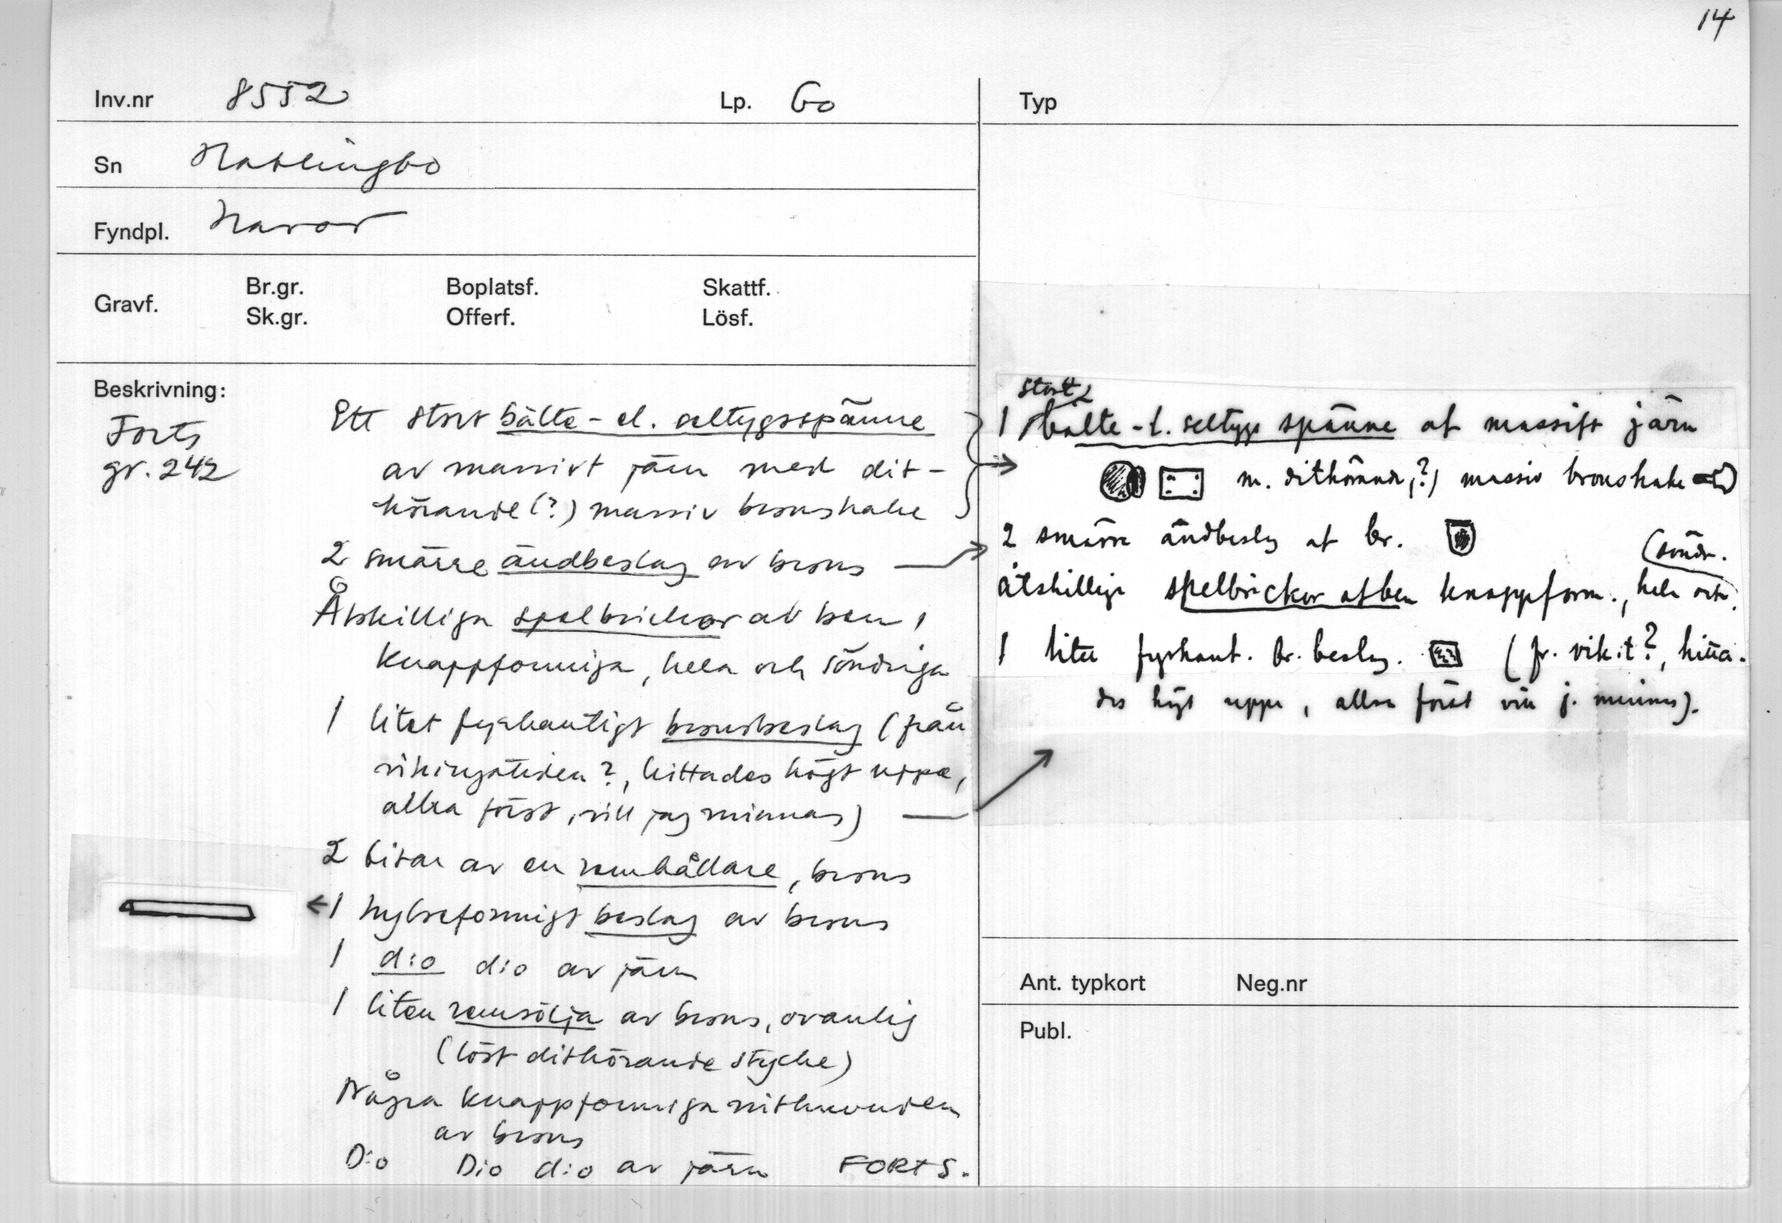 14
Inv.nr 8552 Lp. Go
Typ
Sn Hablingbo
Fyndpl. Havor
Gravf. Br.gr. Boplatsf. Skattf.
Sk.gr. Offerf. Lösf.
Beskrivning:
Forts
gr. 242
Ett stort bälte- el. seltygsspänne
av massivt järn med dit-
hörande (?) massiv bronshake
2 smärre ändbeslag av brons
Åtskilliga spelbrickor av ben,
knappformiga, hela och söndriga
1 litet fyrkantigt bronsbeslag (från
vikingatiden?, hittades högt uppe,
allra först, vill jag minnas)
2 bitar av en remhållare, brons
1 hylsformigt beslag av brons
1 d:o d:o av järn
1 liten remsölja av brons, ovanlig
(löst dithörande stycke)
Några knappformiga nithuvuden
av brons
D:o D:o d:o av järn FORTS.
stort
1 bälte-l. seltygs spänne af massift järn
m. dithörande(?) massiv bronshake
2 smärre ändbeslag af br.
(söndr.
åtskilliga spelbrickor af ben knappform., hela och
1 litet fyrkant. br. beslag. (fr. vik.t?, hitta-
des högt uppe, allra först vill j. minnas).
Ant. typkort Neg.nr
Publ.